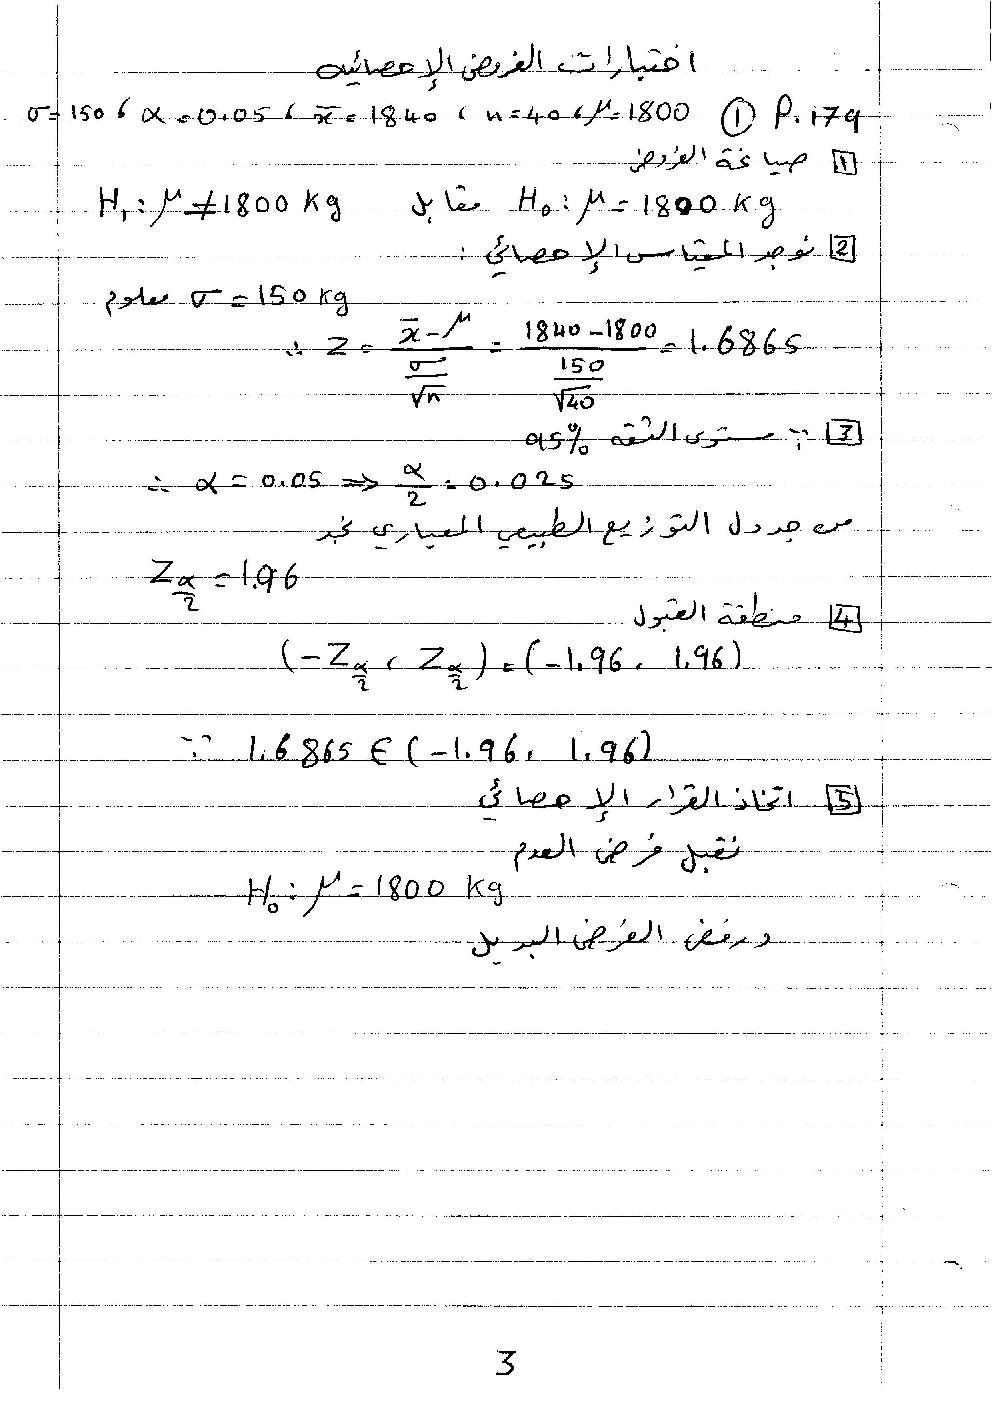 اختبارات الفروض الإحصائية
P. 179 ① μ = 1800 ، n = 40 ، x̄ = 1840 ، α = 0.05 ، σ = 150
1 صياغة الفروض
H₀ : μ = 1800 kg مقابل H₁ : μ ≠ 1800 kg
2 نوجد المقياس الإحصائي :
σ = 150 kg معلوم
∴ Z = (x̄ - μ) / (σ/√n) = (1840 - 1800) / (150/√40) = 1.6865
3 ∵ مستوى الثقة 95%
∴ α = 0.05 ⇒ α/2 = 0.025
من جدول التوزيع الطبيعي المعياري نجد
Z_α/2 = 1.96
4 منطقة القبول
(-Z_α/2 ، Z_α/2) = (-1.96 ، 1.96)
∵ 1.6865 ∈ (-1.96 ، 1.96)
5 اتخاذ القرار الإحصائي
نقبل فرض العدم
H₀ : μ = 1800 kg
ورفض الفرض البديل
3